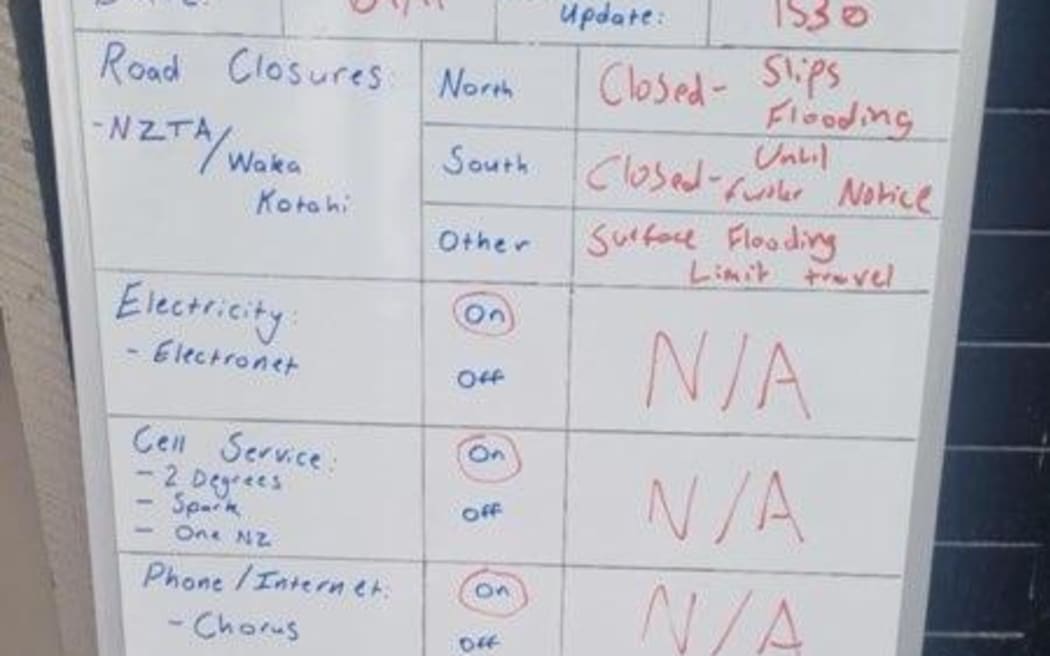 Update: 1530
Road Closures:
-NZTA/
Waka
Kotahi
North
Closed- Slips
Flooding
South
Closed- Until
furher Notice
Other
Surface Flooding
Limit travel
Electricity:
- Electronet
On
Off
N/A
Cell Service:
- 2 Degrees
- Spark
- One NZ
On
Off
N/A
Phone/Internet:
- Chorus
On
Off
N/A